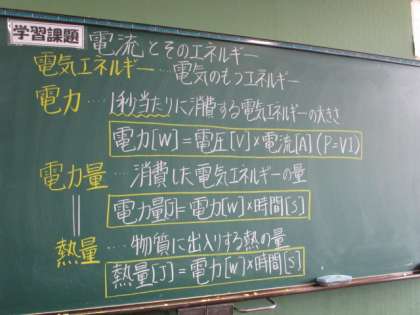 学習課題 電流とそのエネルギー
電気エネルギー…電気のもつエネルギー
電力…1秒当たりに消費する電気エネルギーの大きさ
電力[W]=電圧[V]×電流[A](P=VI)
電力量…消費した電気エネルギーの量
電力量[J]=電力[W]×時間[s]
||
熱量…物質に出入りする熱の量
熱量[J]=電力[W]×時間[s]